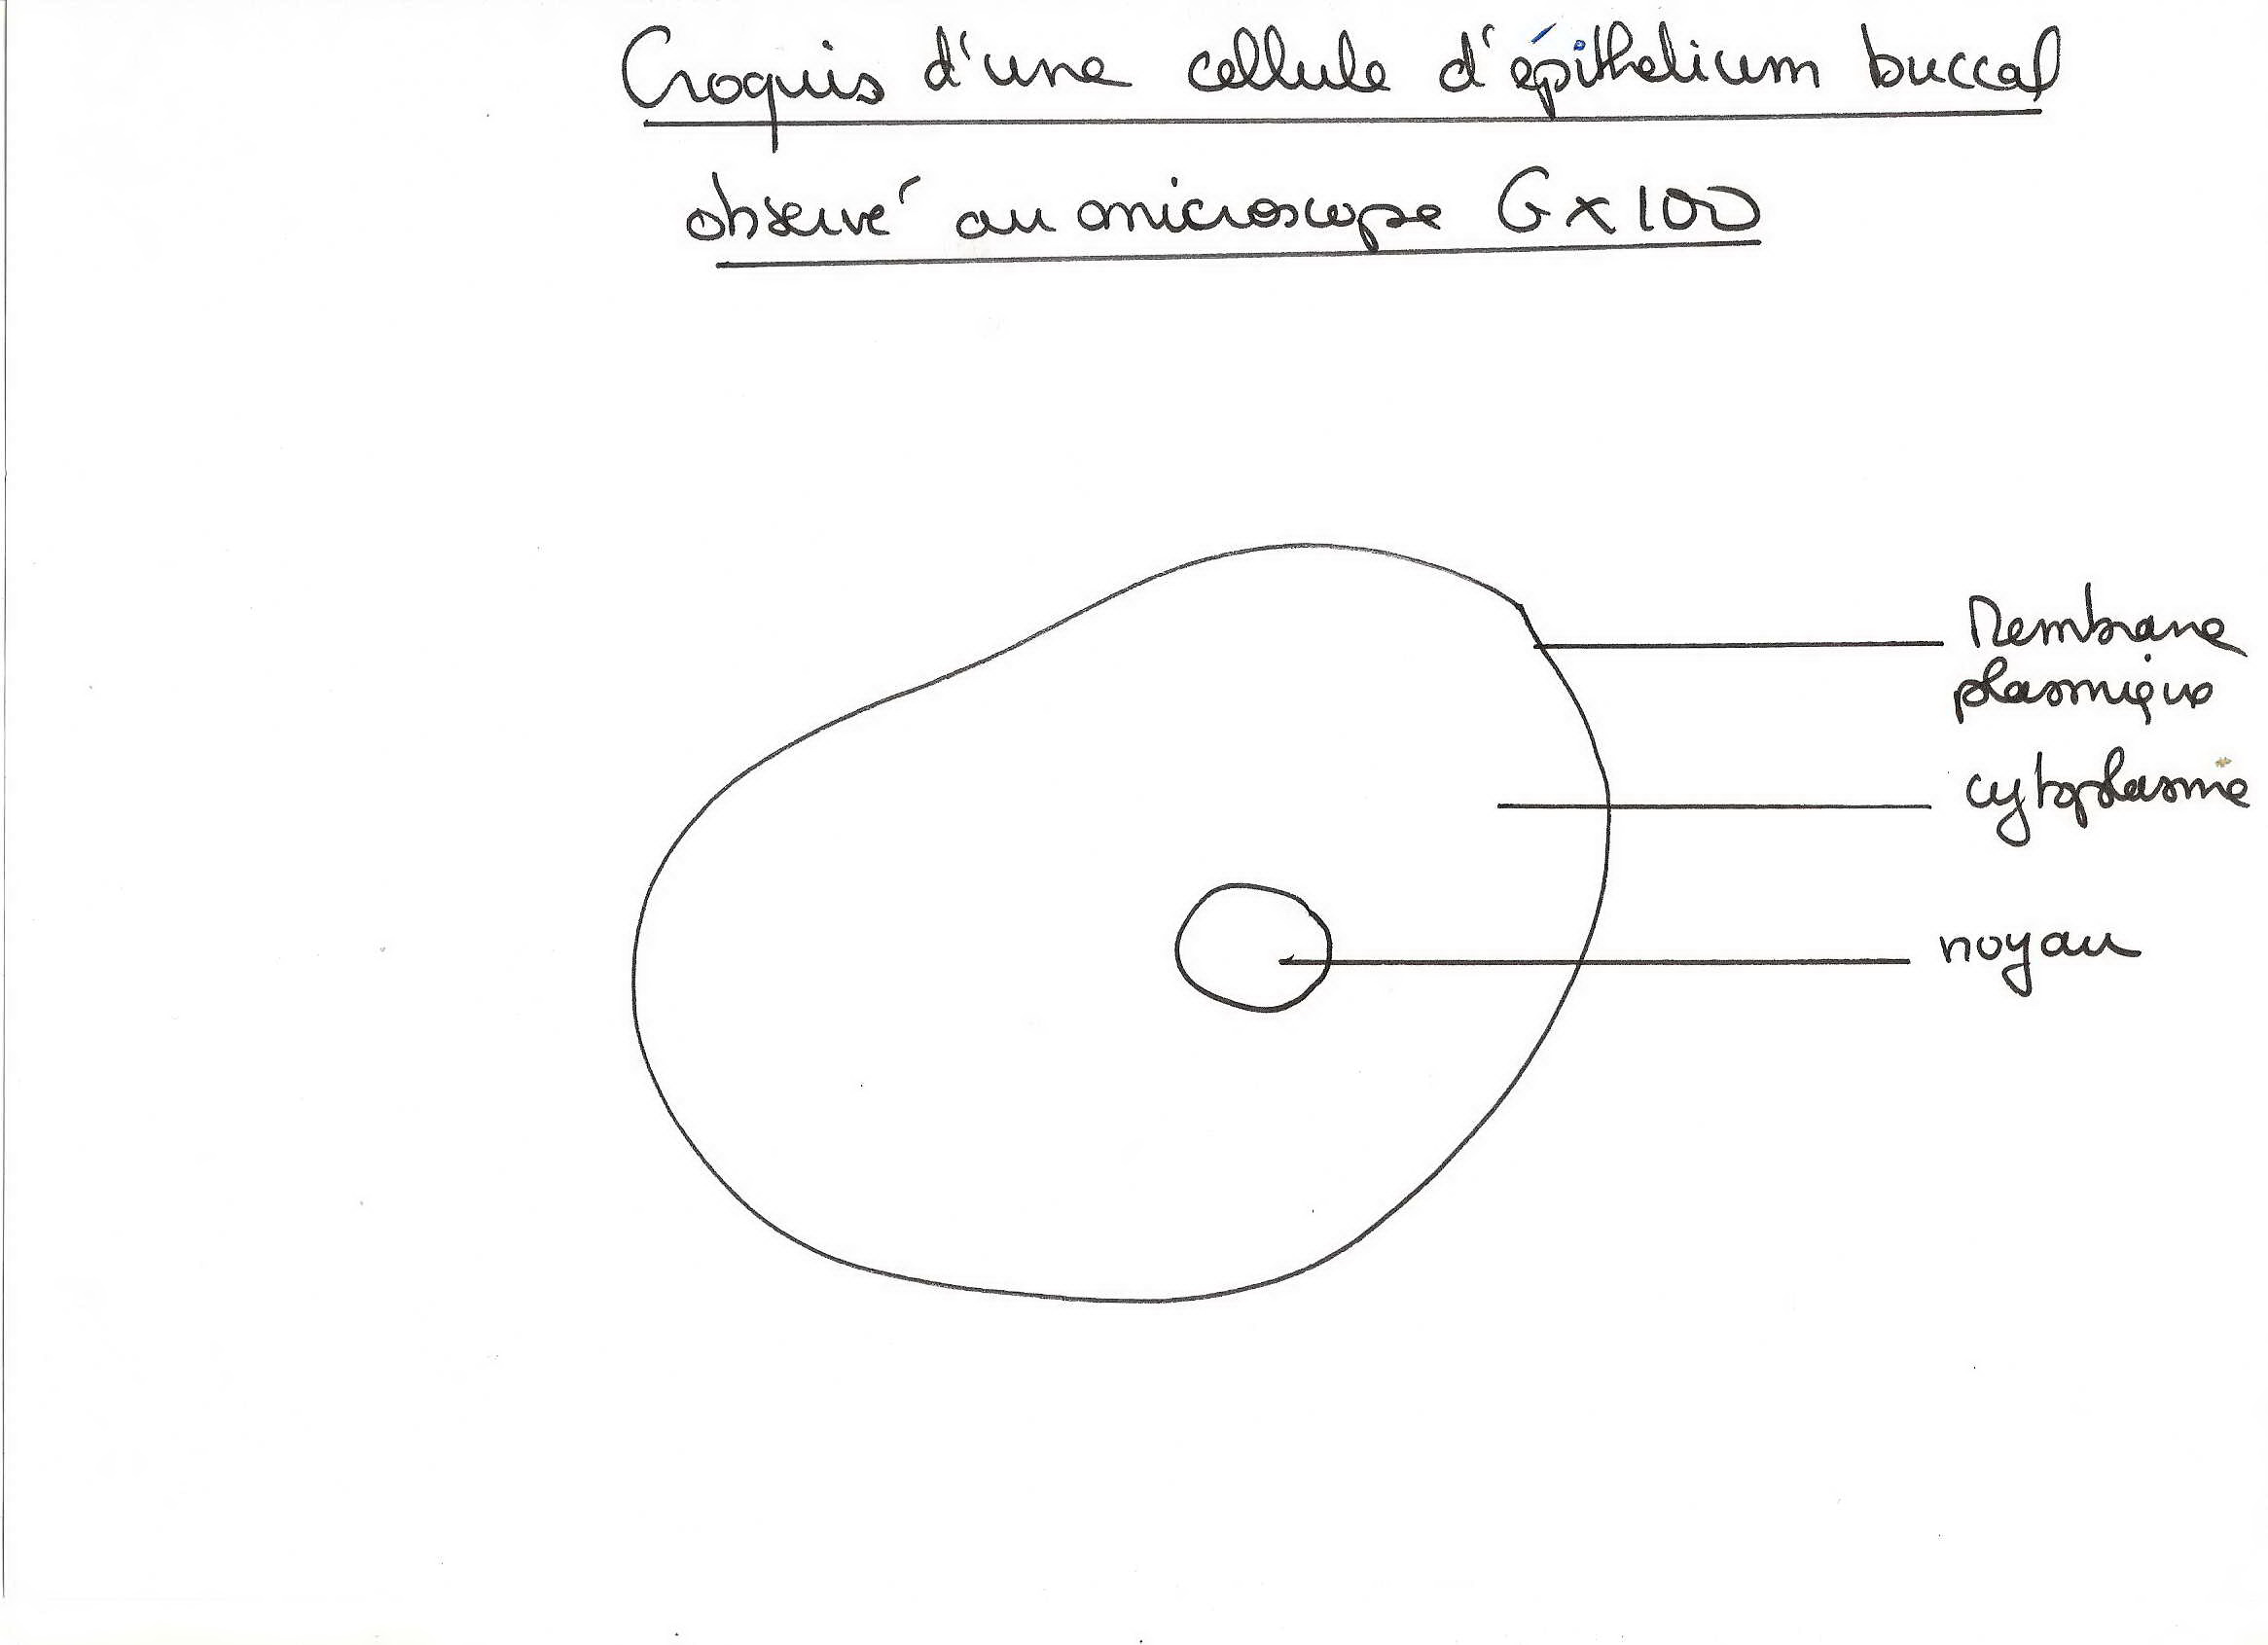 Croquis d'une cellule d'épithelium buccal
observé au microscope G x 100
Membrane
plasmique
cytoplasme
noyau